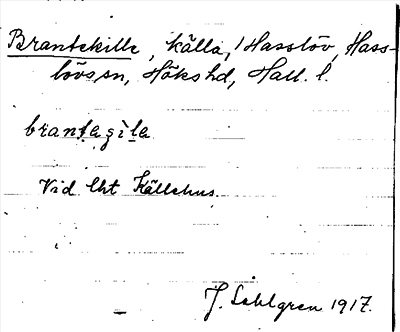 Brantekille, källa, i Hasslöv, Hass-
lövs sn, Höks hd, Hall. l.
brantagila
Vid lht Källehus.
J. Sahlgren 1917.